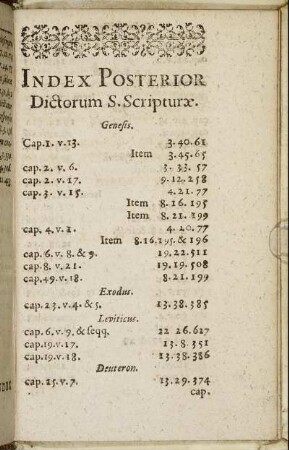 INDEX POSTERIOR
Dictorum S. Scripturæ.
Genesis.
Cap.1. v.13. 3.40.61
Item 3.45.65
cap. 2. v. 6. 3.33.57
cap. 2. v. 17. 9.12.258
cap. 3. v. 15. 4.21.77
Item 8.16.195
Item 8.21.199
cap. 4. v. 1. 4.20.77
Item 8.16.195.& 196
cap. 6. v. 8. & 9. 19.22.511
cap. 8. v. 21. 19.19.508
cap.49. v. 18. 8.21.199
Exodus.
cap. 23. v. 4. & 5. 13.38.385
Leviticus.
cap. 6. v. 9. & seqq. 22 26.627
cap.19.v.17. 13.8.351
cap.19.v.18. 13.38.386
Deuteron.
cap. 25. v. 7. 13.29.374
cap.